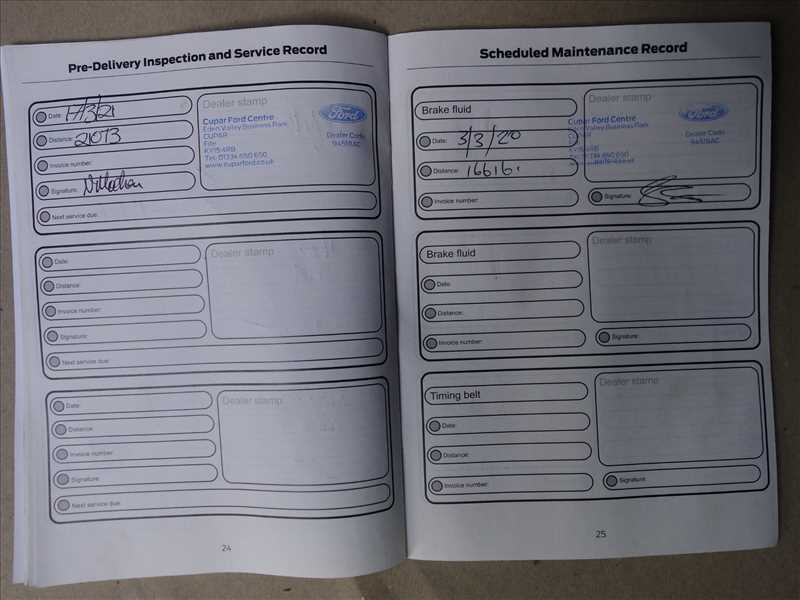 Pre-Delivery Inspection and Service Record
Date:
Dealer stamp
Cupar Ford Centre
Eden Valley Business Park
CUPAR
Fife
KY15 4RB
Tel: 01334 650 650
www.cuparford.co.uk
Ford
Dealer Code
94518AC
Distance: 21073
Invoice number:
Signature:
Next service due:
Date:
Dealer stamp
Distance:
Invoice number:
Signature:
Next service due:
Date:
Dealer stamp
Distance:
Invoice number:
Signature:
Next service due:
24
Scheduled Maintenance Record
Brake fluid
Dealer stamp
Cupar Ford Centre
Eden Valley Business Park
CUPAR
Fife
KY15 4RB
Tel: 01334 650 650
www.cuparford.co.uk
Ford
Dealer Code
94518AC
Date: 3/3/20
Distance: 16616
Invoice number:
Signature:
Brake fluid
Dealer stamp
Date:
Distance:
Invoice number:
Signature:
Timing belt
Dealer stamp
Date:
Distance:
Invoice number:
Signature:
25